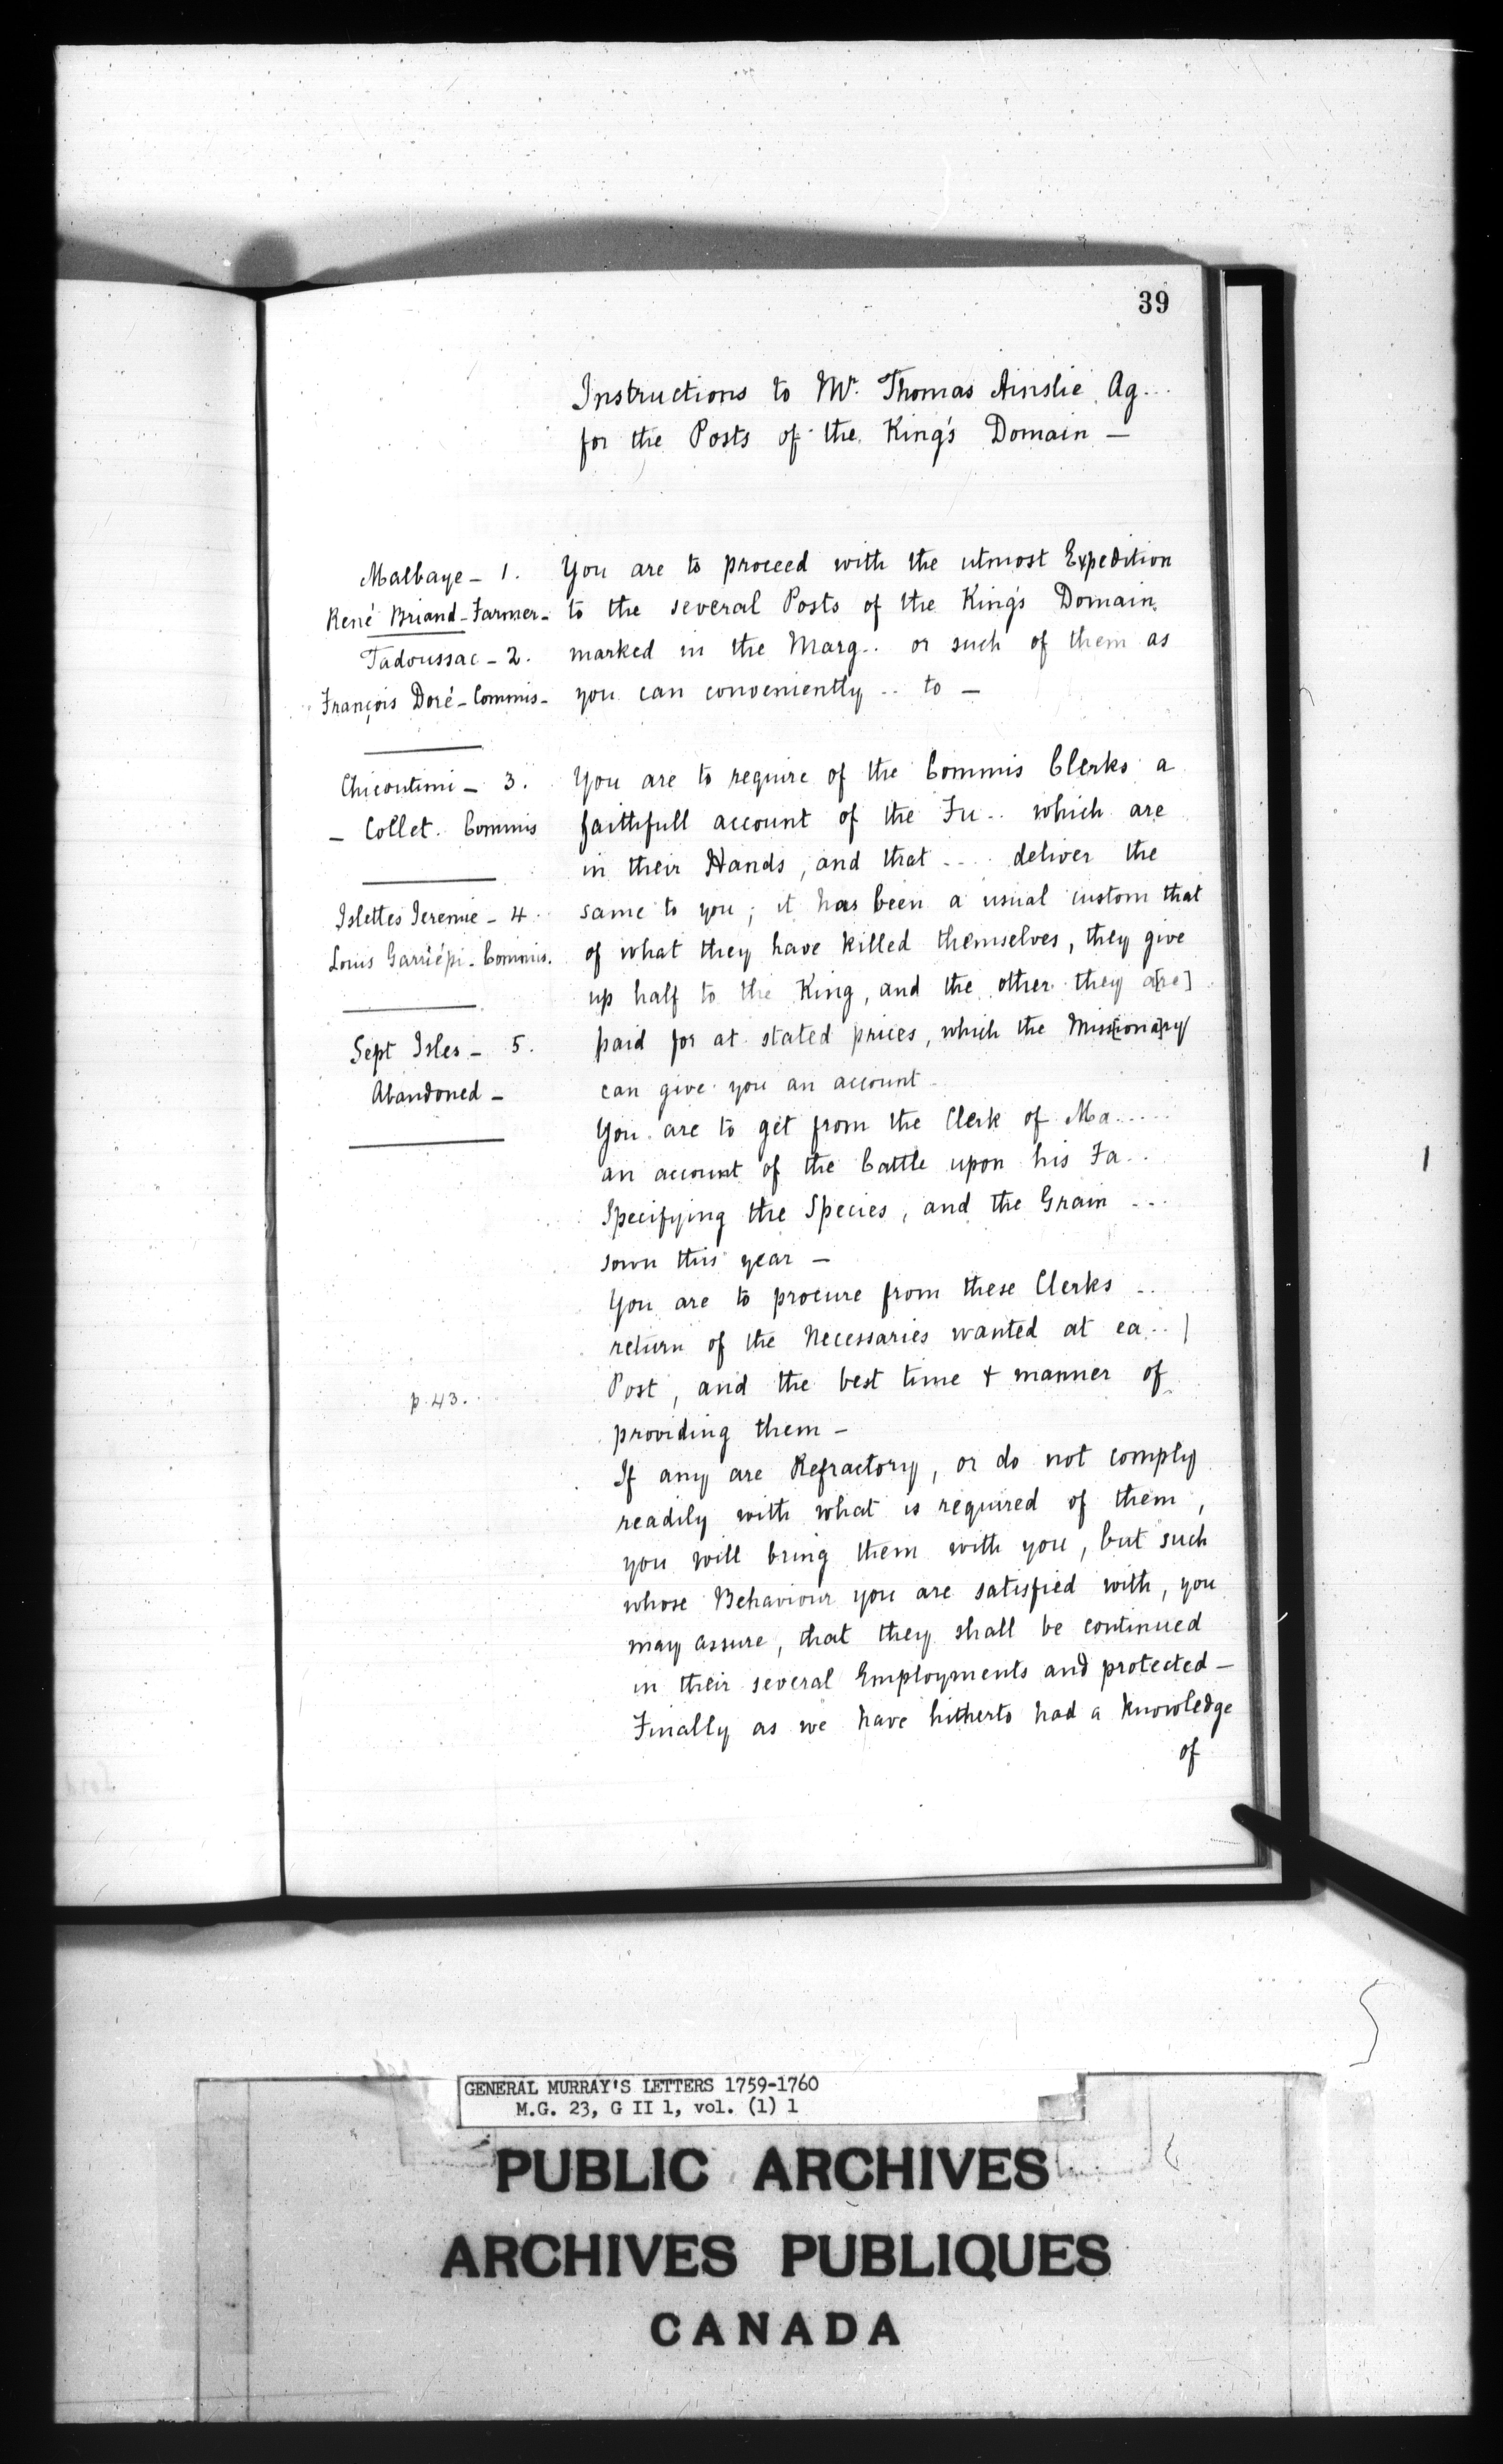 39
Instructions to Mr. Thomas Ainslie Ag...
for the Posts of the King's Domain —
Malbaye – 1.
René Briand – Farmer –
Tadoussac – 2.
François Doré – Commis –
Chicoutimi – 3.
– Collet. Commis
Islettes Jeremie – 4.
Louis Garriépi – Commis.
Sept Isles – 5.
Abandoned –
p. 43.
You are to proceed with the utmost Expedition
to the several Posts of the King's Domain,
marked in the Marg.. or such of them as
you can conveniently .. to —
You are to require of the Commis Clerks a
faithfull account of the Fu.. which are
in their Hands, and that .... deliver the
same to you; it has been a usual custom that
of what they have killed themselves, they give
up half to the King, and the other they a[re]
paid for at stated prices, which the Miss[iona]ry
can give you an account
You are to get from the Clerk of Ma.....
an account of the Cattle upon his Fa..
Specifying the Species, and the Grain ...
sown this year —
You are to procure from these Clerks ..
return of the Necessaries wanted at ea..
Post, and the best time + manner of
providing them –
If any are Refractory, or do not comply
readily with what is required of them,
you will bring them with you, but such
whose Behaviour you are satisfied with, you
may assure, that they shall be continued
in their several Employments and protected –
Finally as we have hitherto had a knowledge
of
GENERAL MURRAY'S LETTERS 1759-1760
M.G. 23, G II 1, vol. (1) 1
PUBLIC ARCHIVES
ARCHIVES PUBLIQUES
CANADA